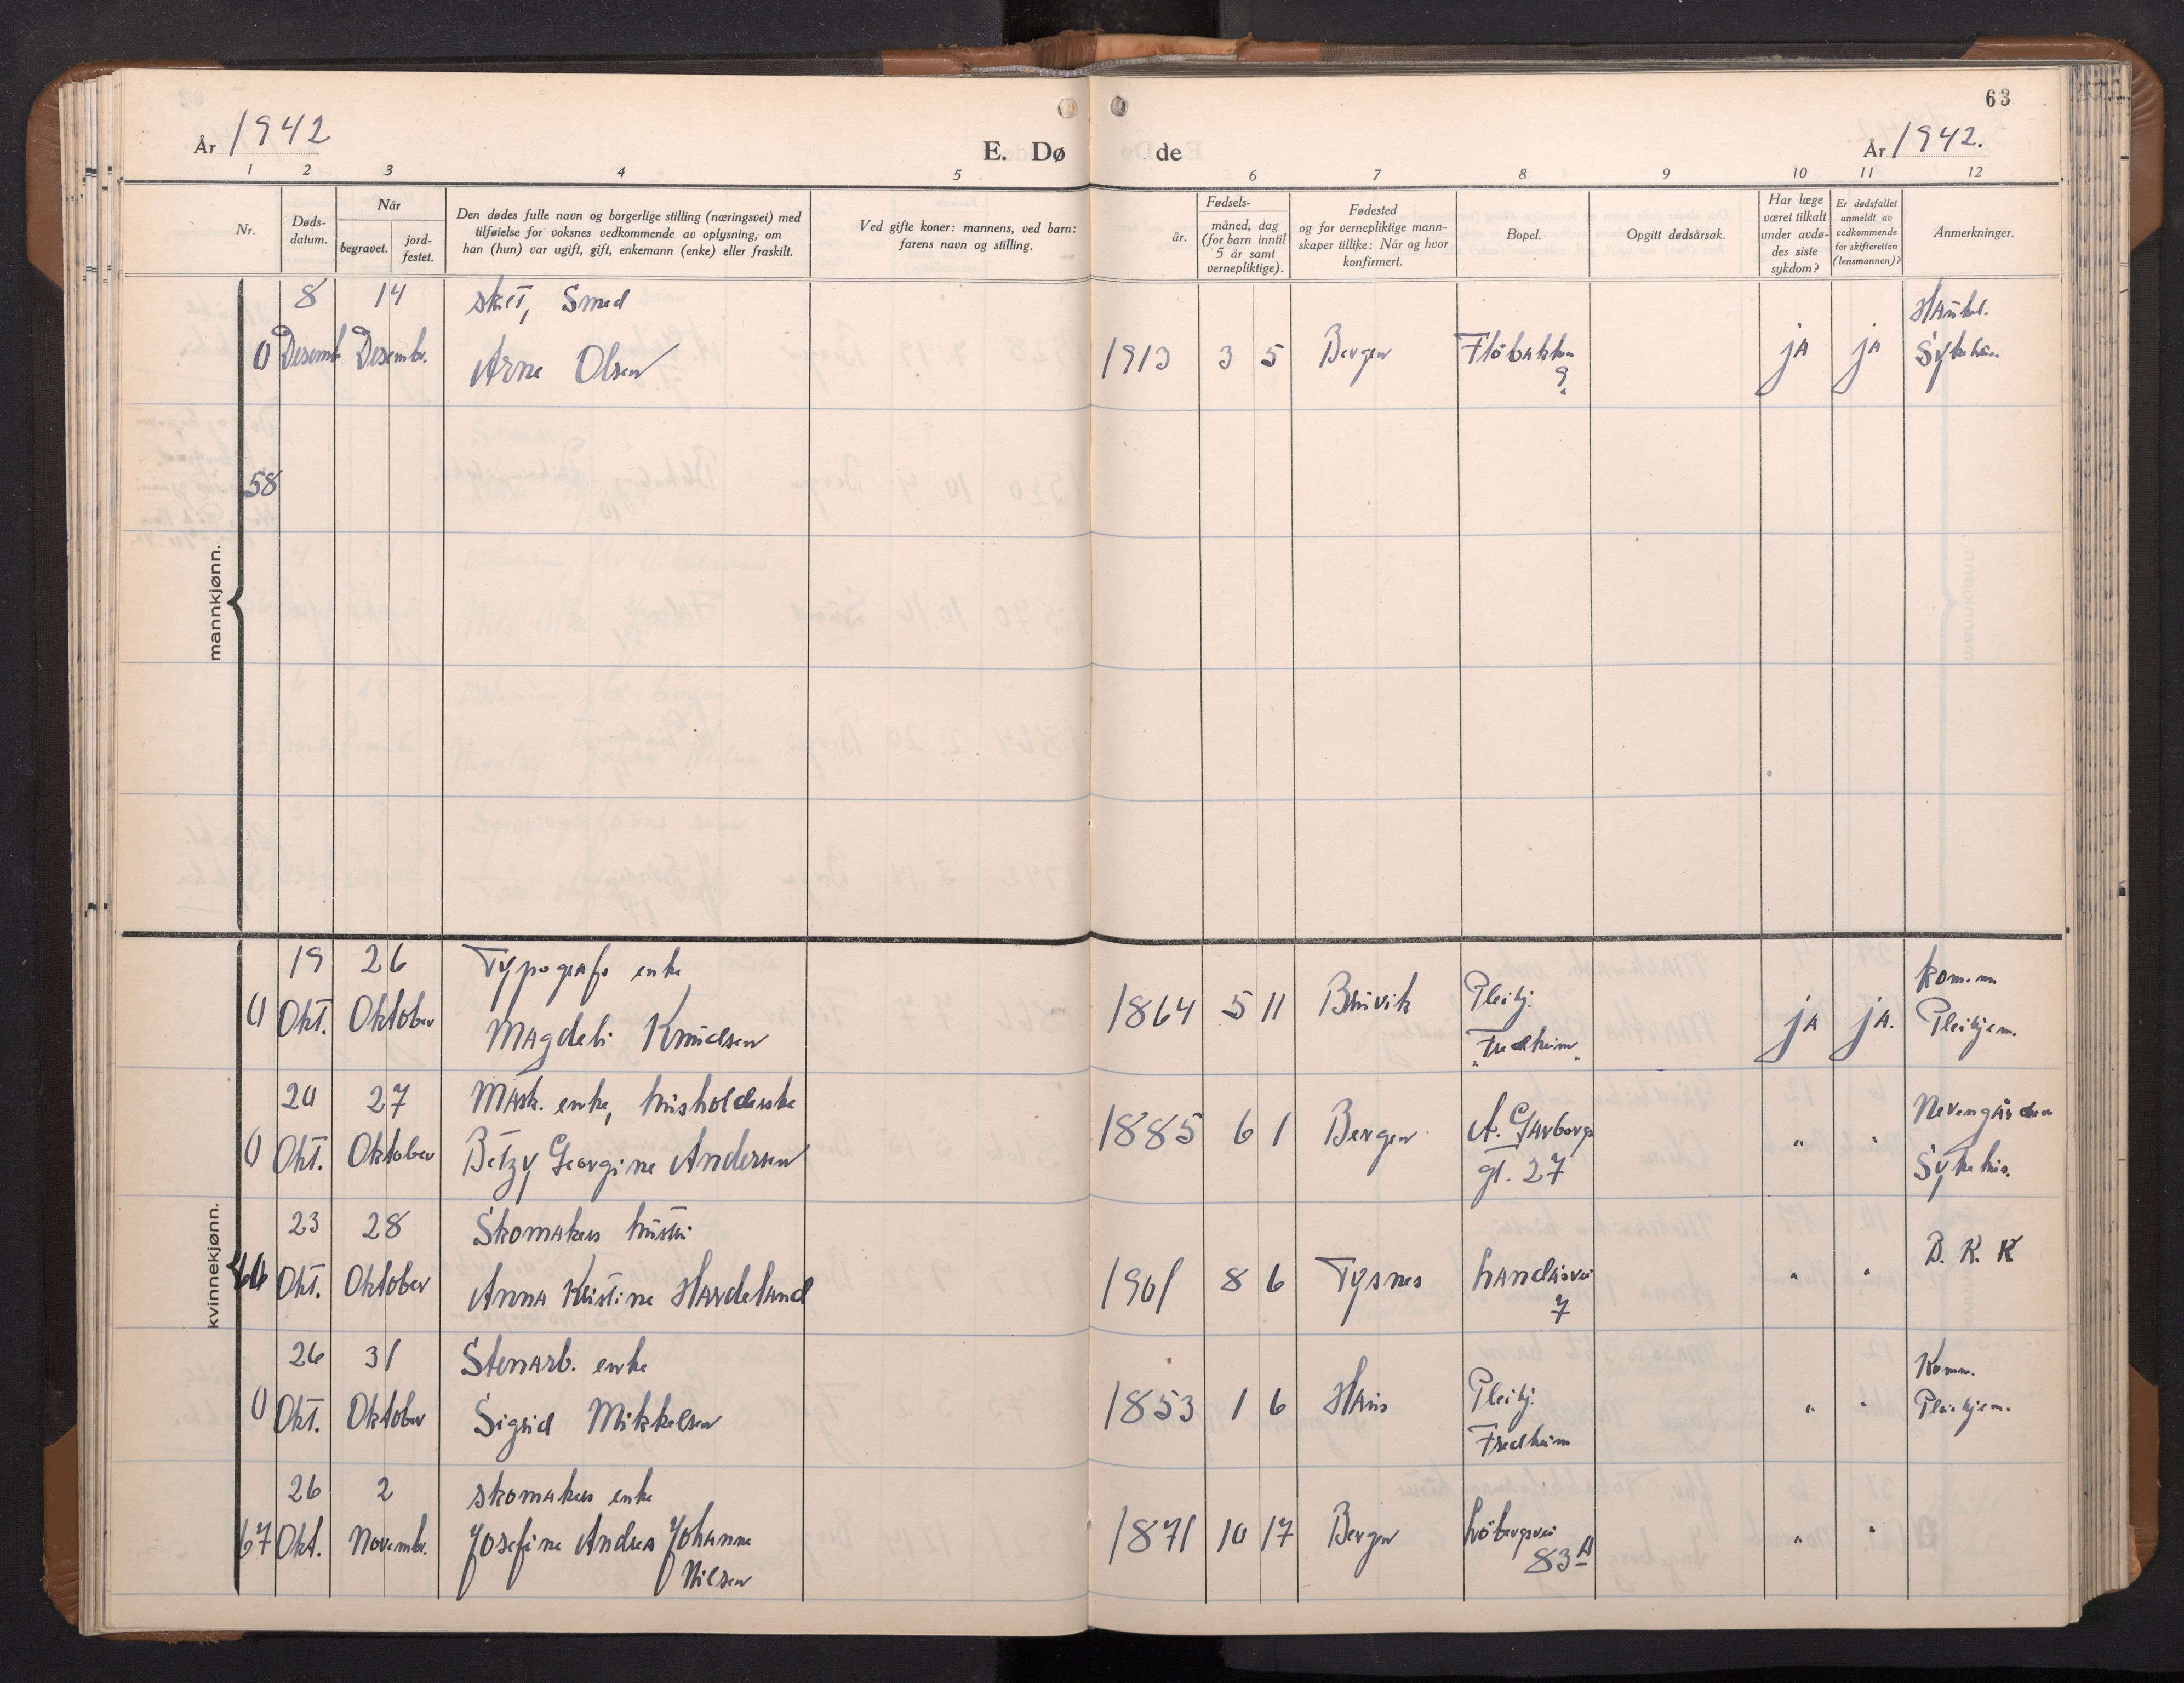 63
År 1942
E. Dø
de
År 1942.
1 2 3 4 5 6 7 8 9 10 11 12
Nr.
Døds-
datum.
Når
begravet.
jord-
festet.
Den dødes fulle navn og borgerlige stilling (næringsvei) med
tilføielse for voksnes vedkommende av oplysning, om
han (hun) var ugift, gift, enkemann (enke) eller fraskilt.
Ved gifte koner: mannens, ved barn:
farens navn og stilling.
Fødsels-
år.
måned, dag
(for barn inntil
5 år samt
vernepliktige).
Fødested
og for vernepliktige mann-
skaper tillike: Når og hvor
konfirmert.
Bopel.
Opgitt dødsårsak.
Har læge
været tilkalt
under avdø-
des siste
sykdom?
Er dødsfallet
anmeldt av
vedkommende
for skifteretten
(lensmannen)?
Anmerkninger.
mannkjønn.
8 14 Smed Haukel.
0 Desemb. Desembr. Arne Olsen 1913 3 5 Bergen Flöbakken ja ja Sykehus
9
58
kvinnekjønn.
19 26 Typografs enke Komm.
0 Okt. Oktober Magdeli Knudsen 1864 5 11 Bruvik Pleihj. ja ja. Pleihjem.
"Fredheim"
20 27 Mask. enke, husholderske Nevengården
0 Okt. Oktober Betzy Georgine Andersen 1885 6 1 Bergen A. Garborgs " " Sykehus.
gt. 27
23 28 Skomakers hustru B. K. K
66 Okt. Oktober Anna Kristine Hardeland 1901 8 6 Tysnes Landåsvei " "
7
26 31 Stenarb. enke Komm.
0 Okt. Oktober Sigrid Mikkelsen 1853 1 6 Haus Pleihj. " " Pleihjem.
Fredheim
26 2 skomakers enke
67 Okt. Novembr. Josefine Andrea Johanne 1871 10 17 Bergen Löbergsvei " "
Nilsen 83 A